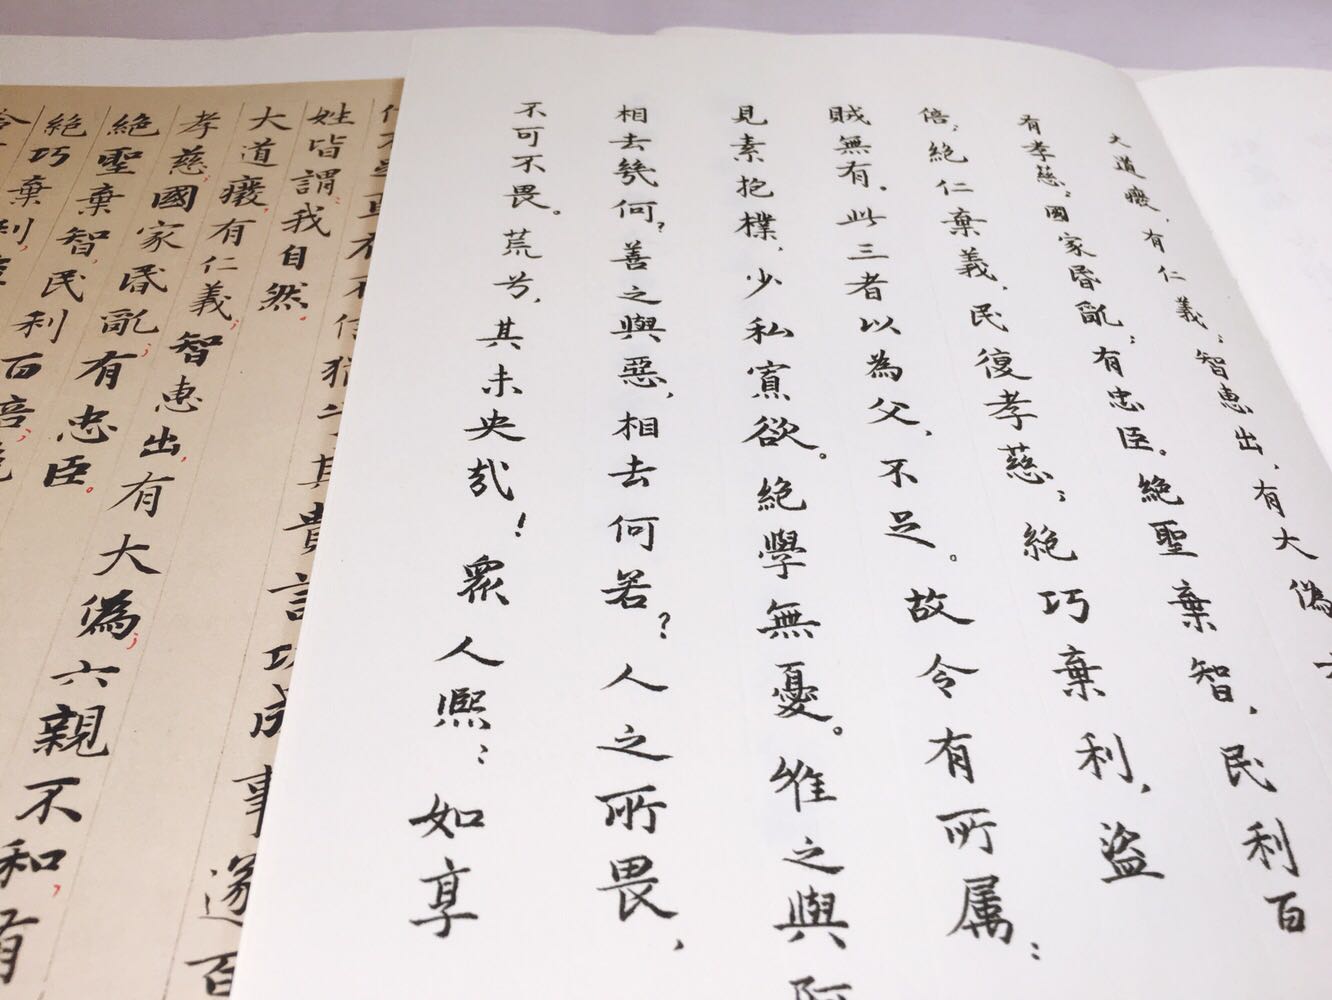 大道癈,有仁義;智惠出,有大偽
有孝慈;國家昏亂;有忠臣。絕聖棄智,民利百
倍,絕仁棄義,民復孝慈;絕巧棄利,盜
賊無有.此三者以為父,不足。故令有所属:
見素抱樸,少私寡欲。絕學無憂。唯之與阿
相去幾何?善之與惡,相去何若?人之所畏,
不可不畏。荒兮,其未央哉!衆人熙:如享
其貴言功成事遂百
姓皆謂我自然。
大道癈,有仁義;智惠出,有大偽;六親不和,有
孝慈,國家昏亂;有忠臣。
絕聖棄智,民利百倍;絕
絕巧棄利,